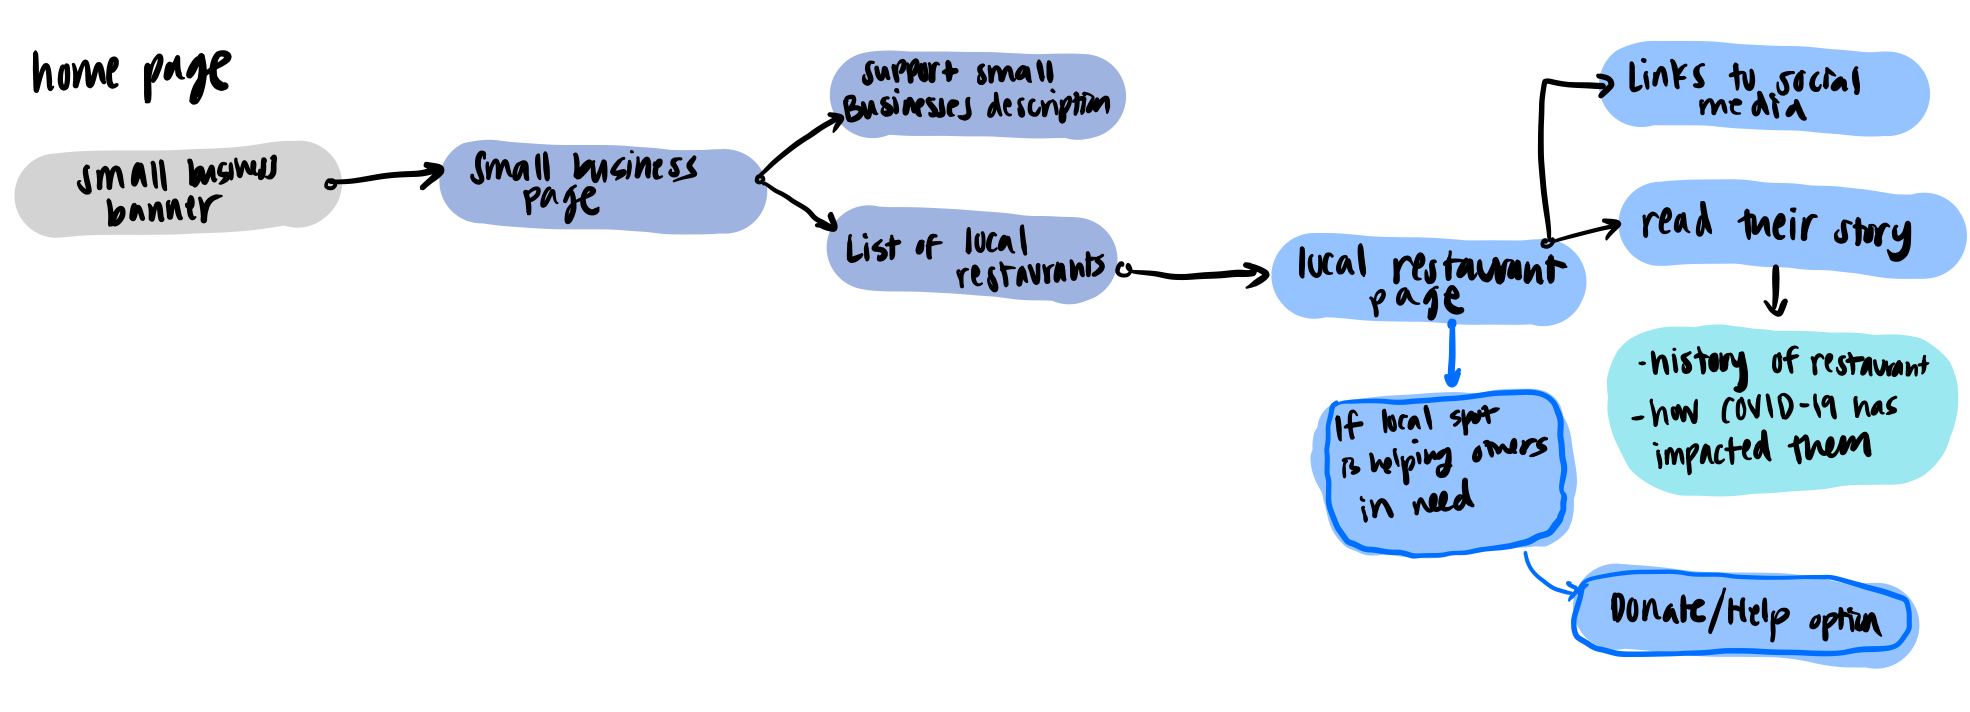 home page
small business
banner
small business
page
support small
Businesses description
List of local
restaurants
local restaurant
page
Links to social
media
read their story
-history of restaurant
-how COVID-19 has
impacted them
If local spot
is helping others
in need
Donate/Help option